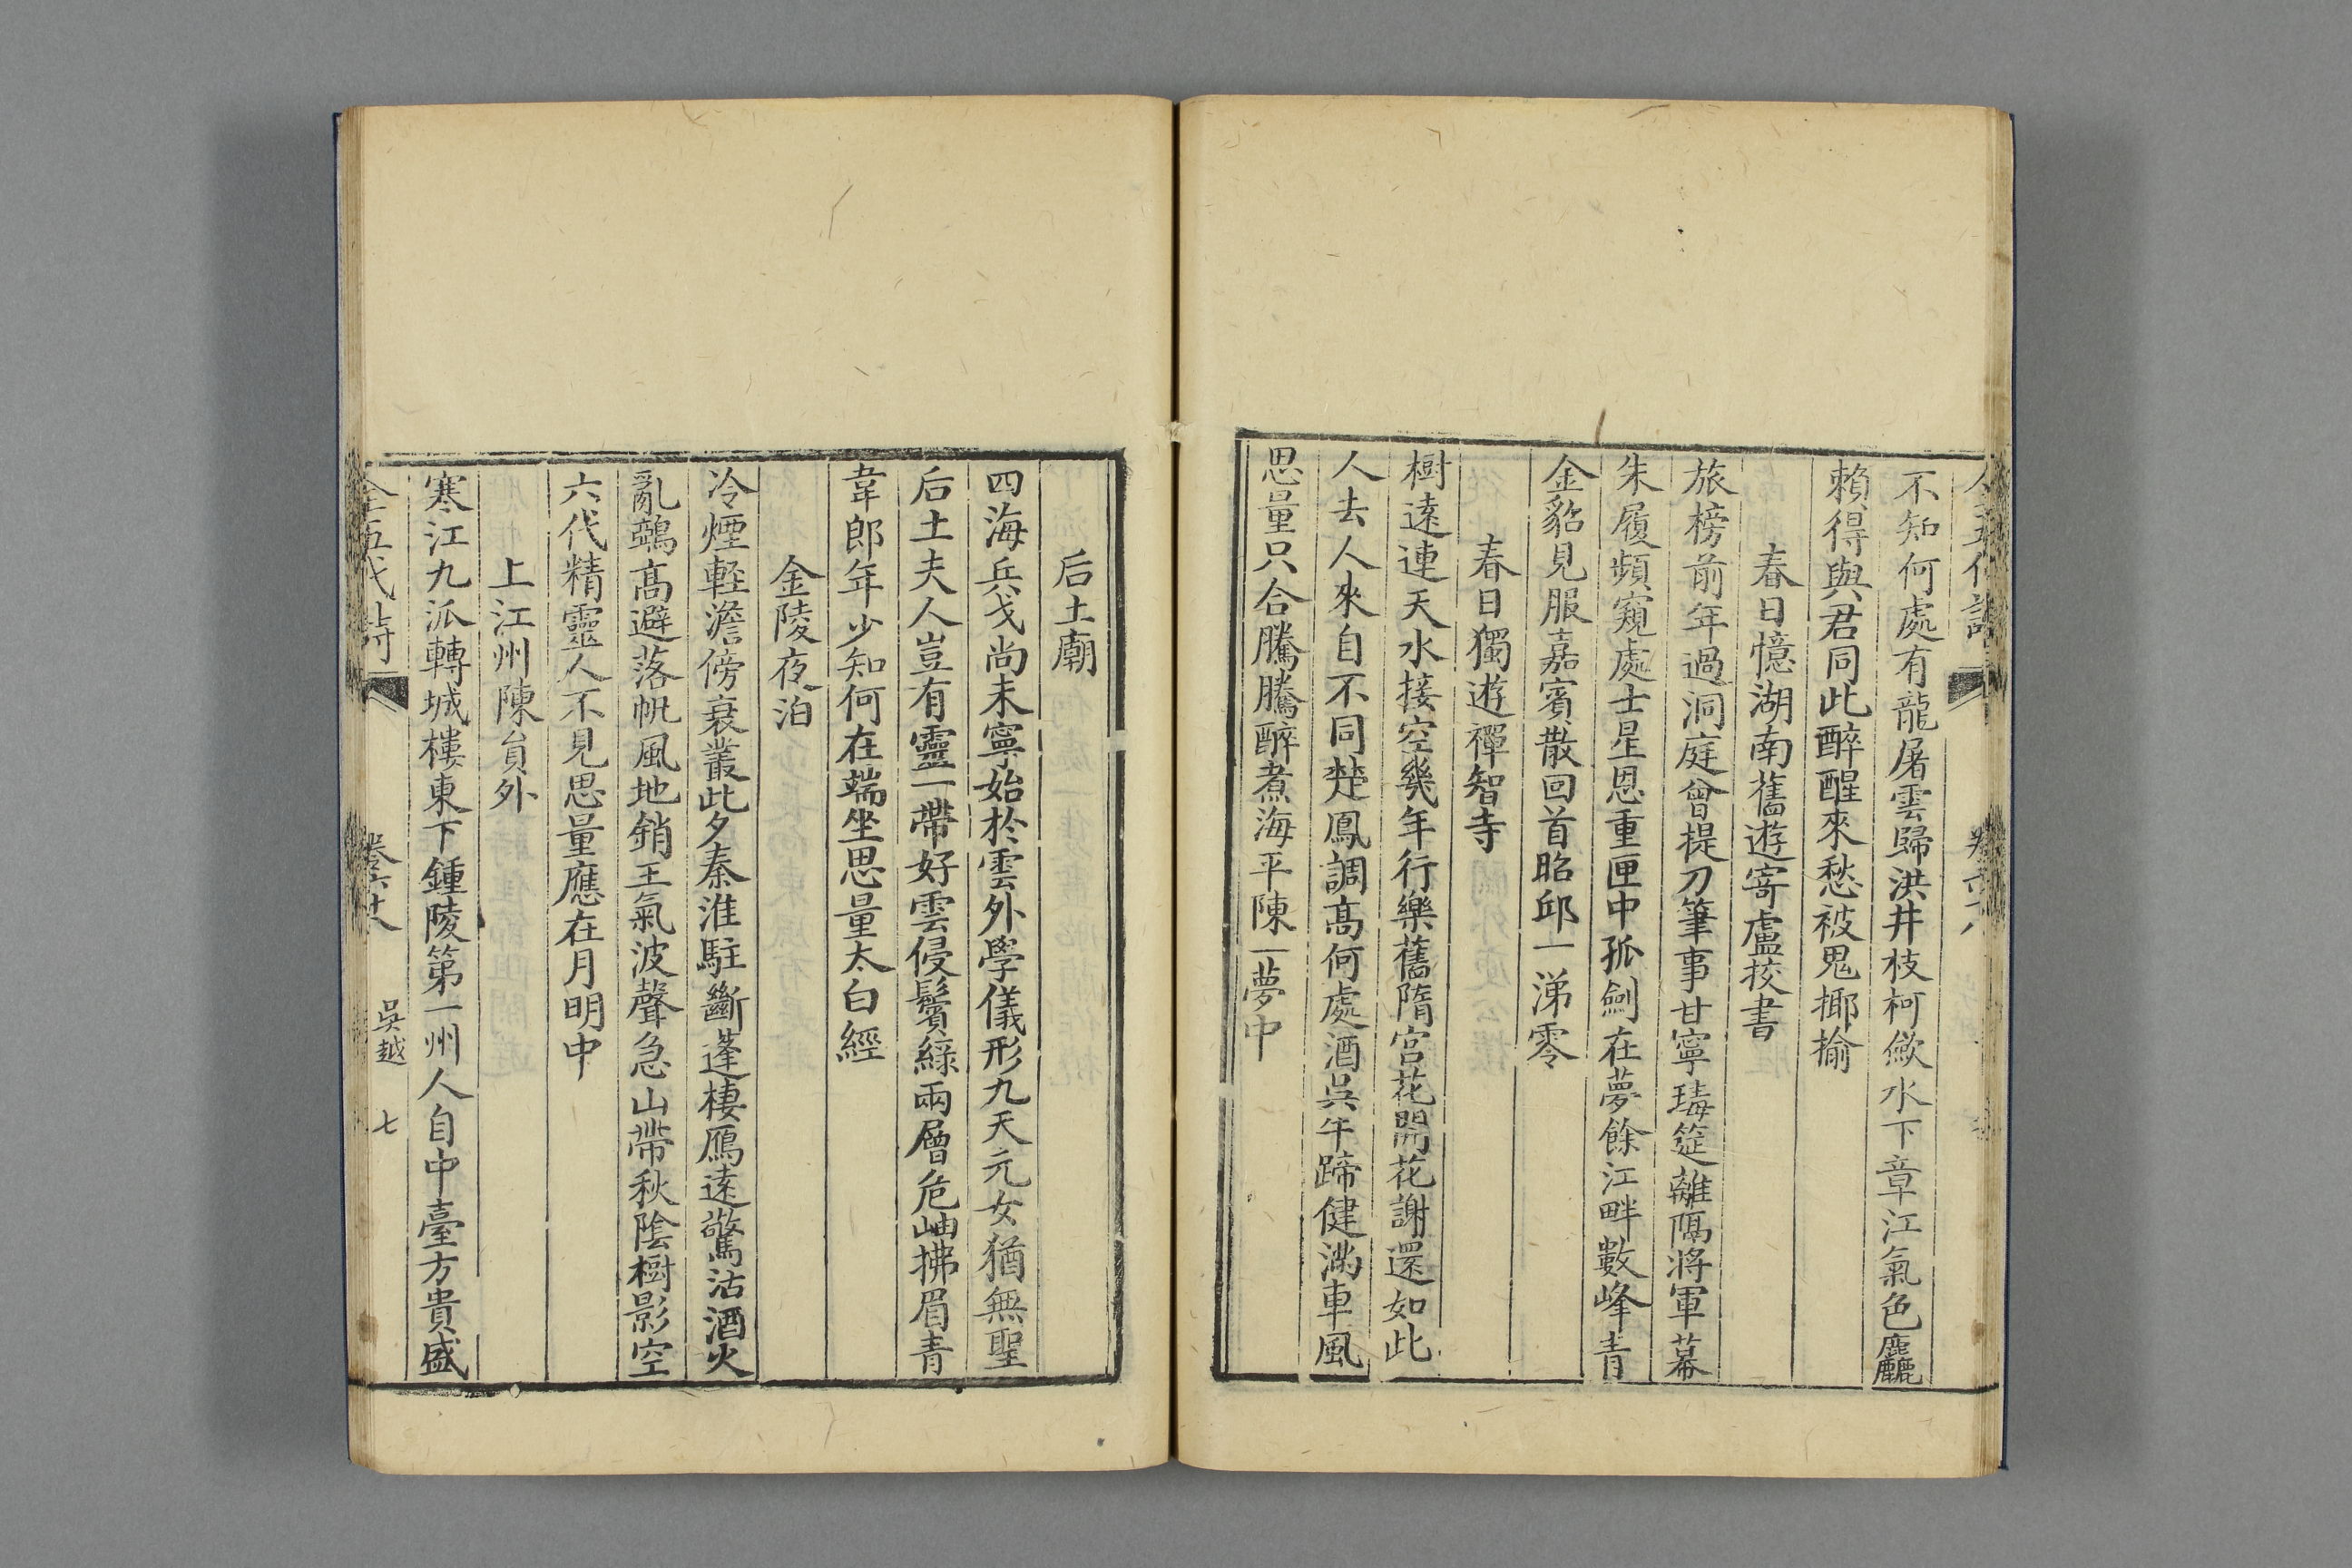 不知何處有龍屠雲歸洪井枝柯斂水下章江氣色麤
賴得與君同此醉醒來愁被鬼揶揄
春日憶湖南舊遊寄盧挍書
旅榜前年過洞庭曾提刀筆事甘寧瑇筵離隔將軍幕
朱履頻窺處士星恩重匣中孤劍在夢餘江畔數峰青
金貂見服嘉賓散回首昭邱一涕零
春日獨遊禪智寺
樹遠連天水接空幾年行樂舊隋宫花開花謝還如此
人去人來自不同楚鳳調高何處酒吳牛蹄健滿車風
思量只合騰騰醉煮海平陳一夢中
后土廟
四海兵戈尚未寧始於雲外學儀形九天元女猶無聖
后土夫人豈有靈一帶好雲侵鬢綠兩層危岫拂眉青
韋郎年少知何在端坐思量太白經
金陵夜泊
冷煙輕澹傍衰叢此夕秦淮駐斷蓬棲鴈遠驚沽酒火
亂鵶高避落帆風地銷王氣波聲急山帶秋陰樹影空
六代精靈人不見思量應在月明中
上江州陳員外
寒江九派轉城樓東下鍾陵第一州人自中臺方貴盛
全五代詩 卷六十八 吳越 七